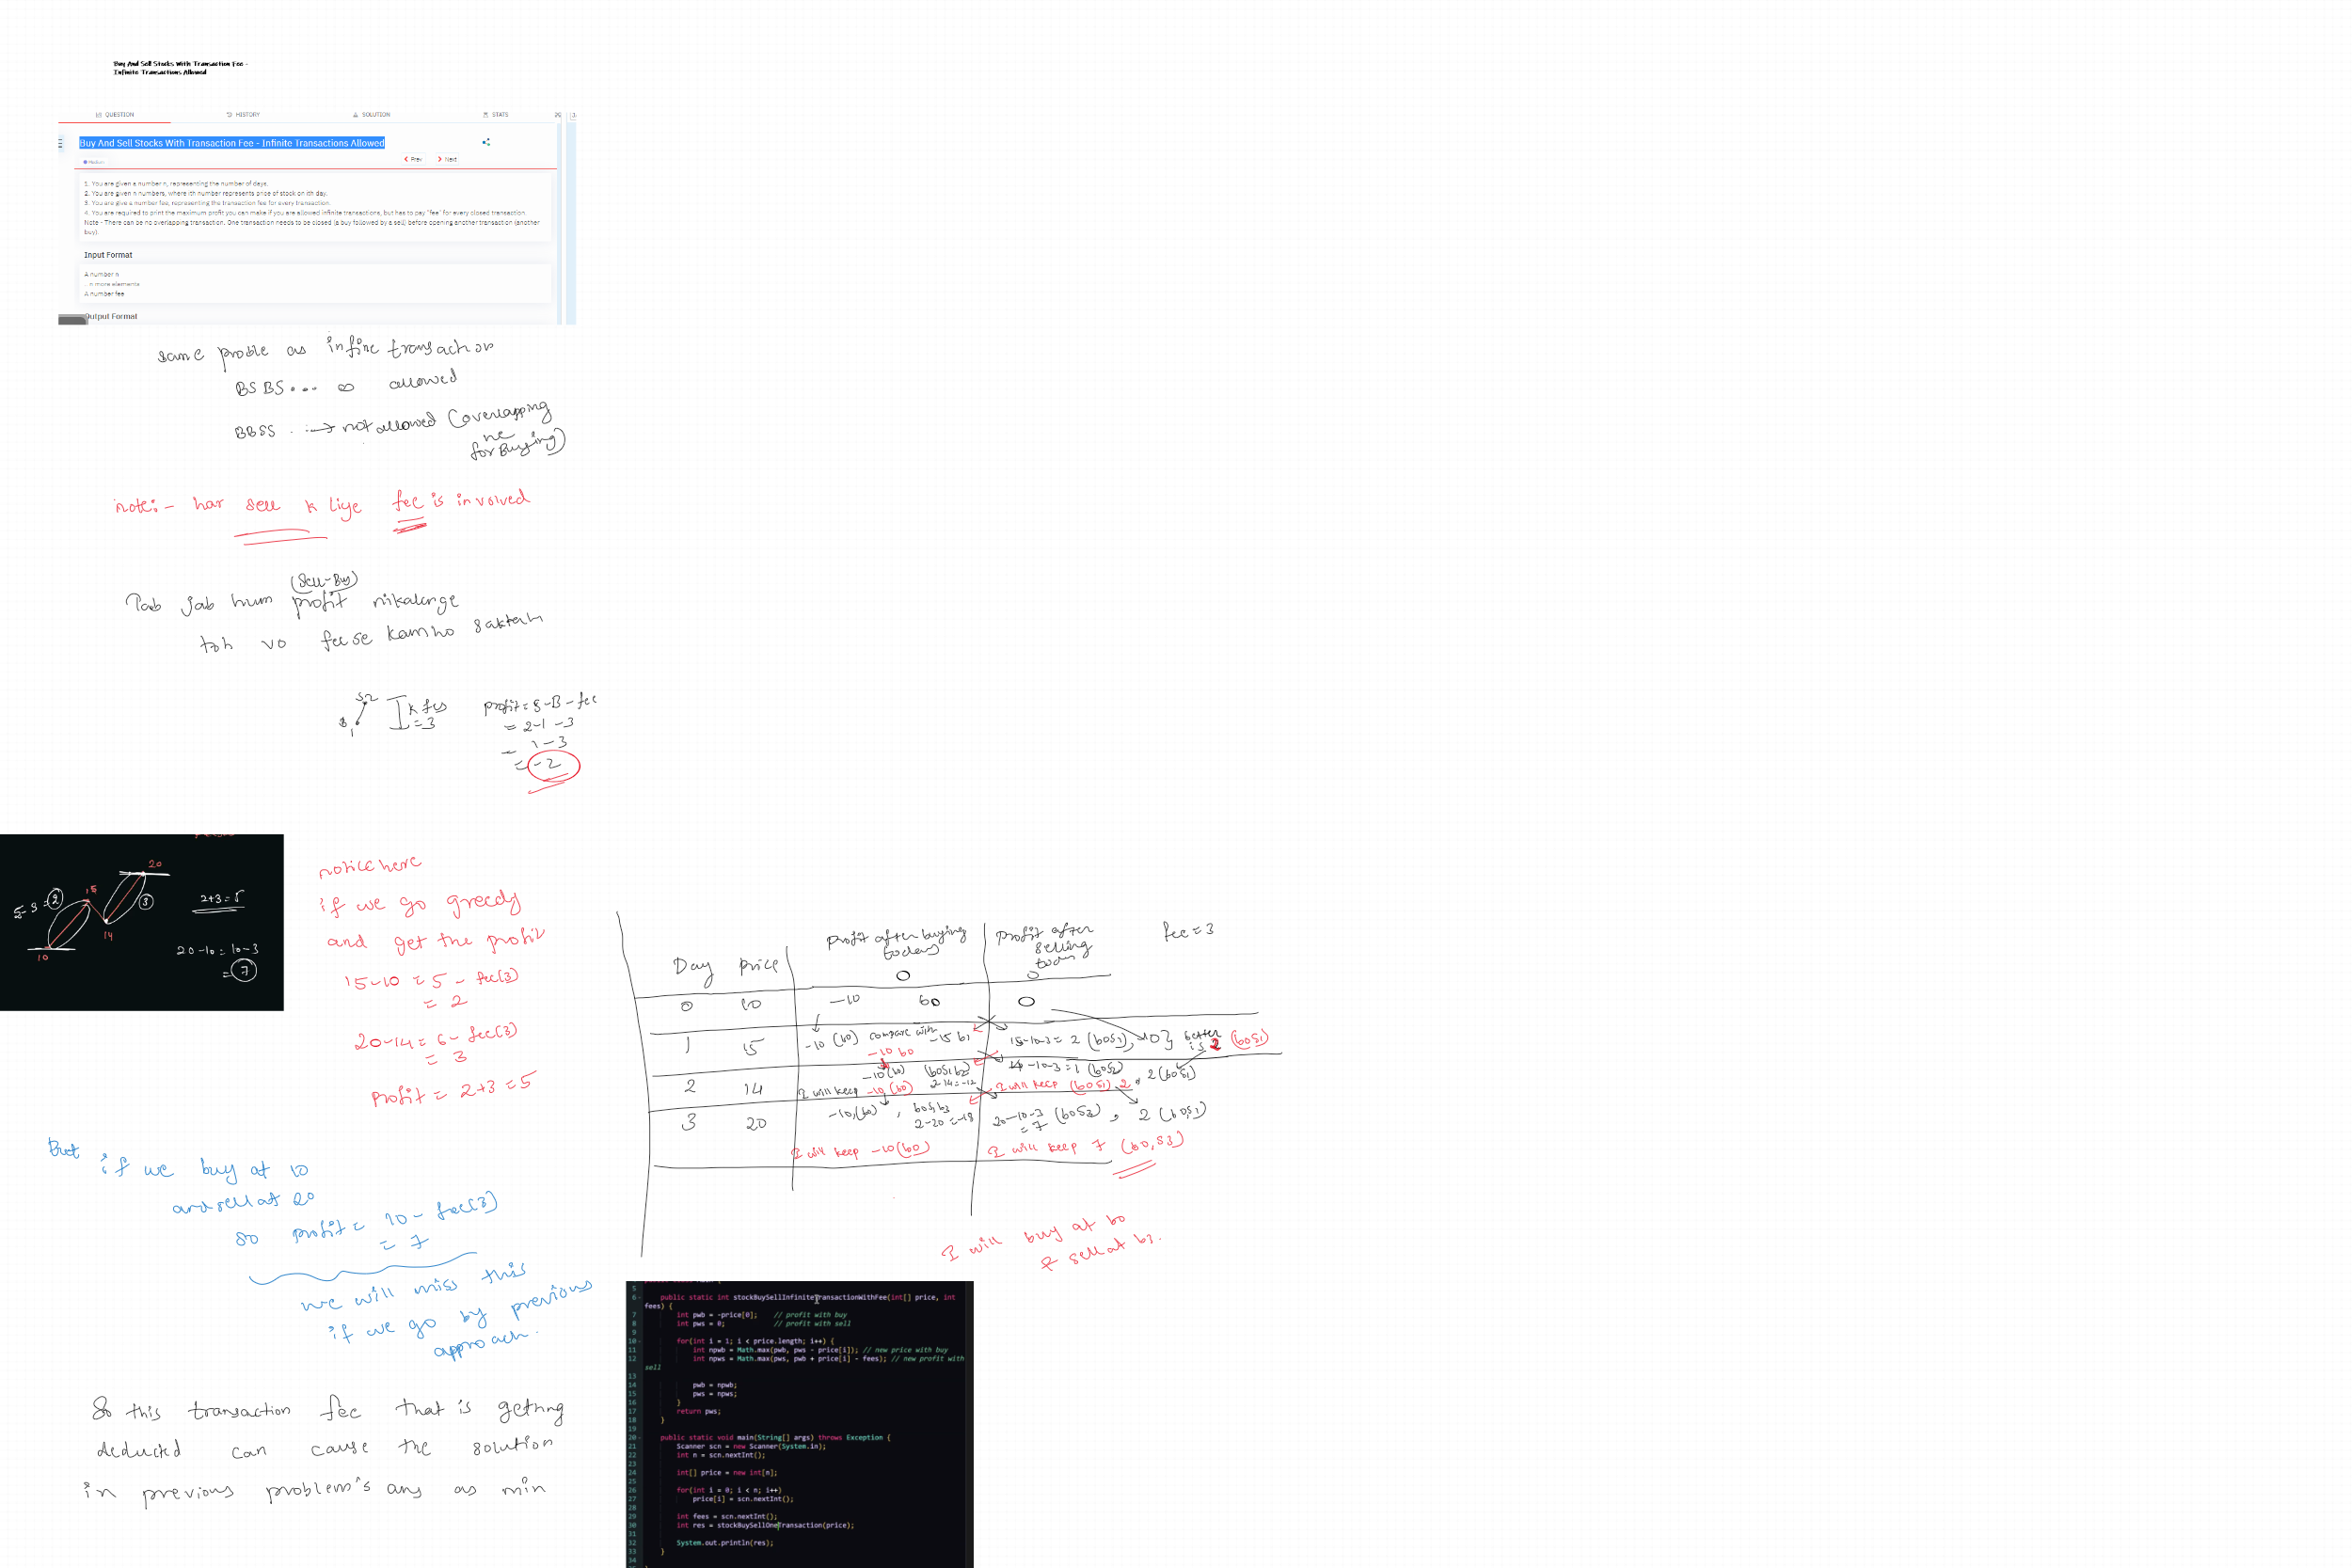 Buy And Sell Stocks With Transaction Fee -
Infinite Transactions Allowed
QUESTION
HISTORY
SOLUTION
STATS
Buy And Sell Stocks With Transaction Fee - Infinite Transactions Allowed
Medium
Prev
Next
1. You are given a number n, representing the number of days.
2. You are given n numbers, where ith number represents price of stock on ith day.
3. You are give a number fee, representing the transaction fee for every transaction.
4. You are required to print the maximum profit you can make if you are allowed infinite transactions, but has to pay "fee" for every closed transaction.
Note - There can be no overlapping transaction. One transaction needs to be closed (a buy followed by a sell) before opening another transaction (another
buy).
Input Format
A number n
.. n more elements
A number fee
Output Format
same proble as infine transaction
BS BS ... ∞ allowed
BBSS ..→ not allowed (overlapping
for Buying)
note:- har sell k liye fee is involved
(Sell-Buy)
Tab jab hum profit nikalenge
toh vo fee se kam ho sakta h
S2
B 1
k fes
=3
profit = S-B-fee
= 2-1-3
= 1-3
= -2
20
15
5-3=2
3
14
10
2+3=5
20-10=10-3
=7
notice here
if we go greedy
and get the profit
15-10 = 5 - fee(3)
= 2
20-14 = 6 - fee(3)
= 3
Profit = 2+3 = 5
But if we buy at 10
and sell at 20
so profit = 10 - fee(3)
= 7
we will miss this
if we go by previous
approach.
So this transaction fee that is getting
deducted can cause the solution
in previous problem's ans as min
Day
price
Profit after buying
today
0
Profit after
selling
today
0
fee = 3
0 10 -10 b0 0
1 15 -10 (b0) compare with -15 b1
-10 b0
15-10-3 = 2 (b0s1), 0} better
is 2 (b0s1)
2 14 -10 (b0) (b0s1b2)
2-14=-12
I will keep -10 (b0)
14-10-3=1 (b0s2) , 2 (b0s1)
I will keep (b0s1) 2
3 20 -10, (b0) , b0s1b3
2-20=-18
20-10-3 (b0s3) , 2 (b0,s1)
= 7
I will keep -10 (b0)
I will keep 7 (b0, s3)
I will buy at b0
& sell at b3.
5
6 public static int stockBuySellInfiniteTransactionWithFee(int[] price, int
fees) {
7 int pwb = -price[0]; // profit with buy
8 int pws = 0; // profit with sell
9
10 for(int i = 1; i < price.length; i++) {
11 int npwb = Math.max(pwb, pws - price[i]); // new price with buy
12 int npws = Math.max(pws, pwb + price[i] - fees); // new profit with
sell
13
14 pwb = npwb;
15 pws = npws;
16 }
17 return pws;
18 }
19
20 public static void main(String[] args) throws Exception {
21 Scanner scn = new Scanner(System.in);
22 int n = scn.nextInt();
23
24 int[] price = new int[n];
25
26 for(int i = 0; i < n; i++)
27 price[i] = scn.nextInt();
28
29 int fees = scn.nextInt();
30 int res = stockBuySellOneTransaction(price);
31
32 System.out.println(res);
33 }
34